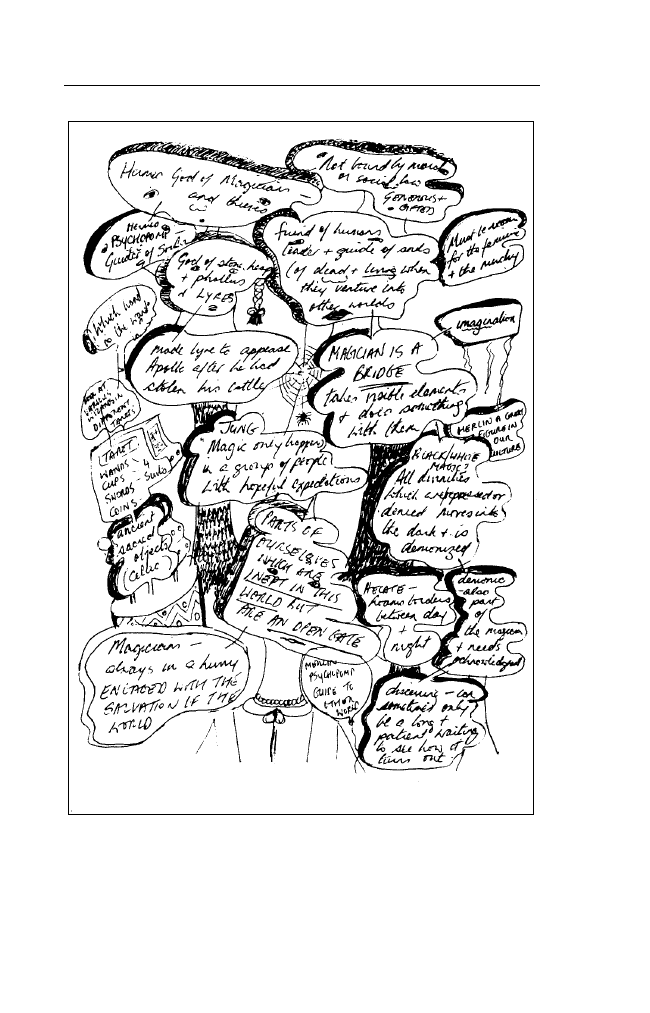 Humer God of Magicians –
and thieves
Not bound by moral
or social law
GENEROUS +
GIFTED
HERMES
PSYCHOPOMP –
Guider of Souls
God of stone heap
+ phallus
+ LYRES
friend of humans
leader + guide of souls
(of dead + living when
they venture into
other worlds
Must be room
for the feminine
+ the
Which hand
is the
made lyre to appease
Apollo after he had
stolen his cattle
MAGICIAN IS A
BRIDGE
takes visible elements
+ does something
with them
imagination
DIFFERENT
TAROT
WANDS –
CUPS – 4
SWORDS – Suits
COINS
JUNG
"Magic only happens
in a group of people
with hopeful expectations
MERLIN A GREAT
FIGURE IN
OUR
CULTURE
BLACK/WHITE
MAGIC?
All divinities
which are repressed or
denied moves into
the dark + is
demonized
ancient
sacred
objects
Celtic
PARTS OF
OURSELVES
WHICH ARE
INEPT IN THIS
WORLD BUT
ARE AN OPEN GATE
HECATE –
roams borders
between day
+
night
demonic
also
part
of
the magician
+ needs
acknowledged
Magicians –
always in a hurry
ENGAGED WITH THE
SALVATION OF THE
WORLD
MERLIN
PSYCHOPOMP
GUIDE TO
OTHER
WORLD
discerning – can
sometimes only
be a long +
patient waiting
to see how it
turns out –